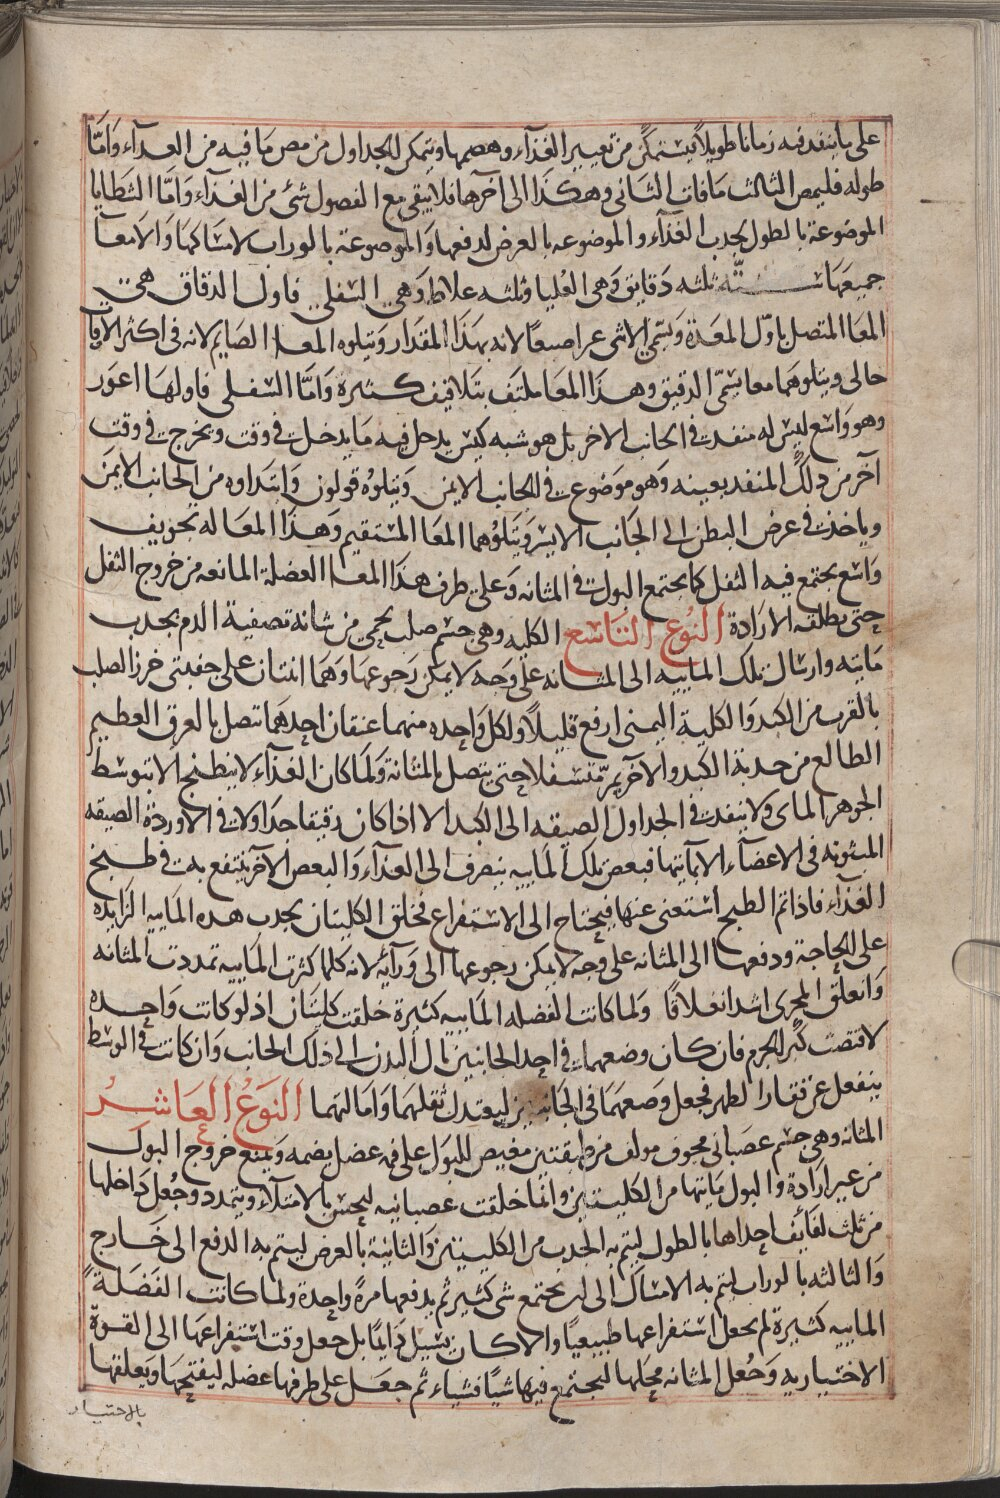 على ما ينفد فيه زمانا طويلا ليتمكن من تغيير الغذآء وهضمها ويتمكن الجداول من مص ما فيه من الغدآء وَامّا
طوله فليمص الثالث ما فات الثانى وهكذا الى آخرها فلا يبقى مع الفضول شئ من الغذآء وَامّا الشظايا
الموضوعة بالطول بجدب الغذآء والموضوعه بالعرض لدفعها وَالموضوعة بالوراب لامساكها وَالامعآ
جميعها ستّه ثلثه دقايق وَهى العُليا وثلثه غلاظ وَهى السفلى فاول الدقاق هى
المعا المتصل باوّل المعدة وَيسمّى الاثنى عشر اصبعًا لانه بهذا المقدار وَيتلوه المعا الصايم لانه فى اكثر الاوقات
خالى ويتلوهما معا يسمّى الدقيق وهذا المعا ملتف بتلافيف كثيرة وَامّا السفلى فاولها اعور
وهو وَاسع ليس له منفد فى الجانب الاخر بل هو شبه كيس يدخل فيه ما يدخل فى وقت ويخرج فى وقت
آخر من ذلك المنفد بعينه وَهو موَضوع فى الجانب الايمن وَيتلوُه قولون وَابتداوه من الجانب الايمن
وياخذ فى عرض البطن الى الجَانب الايسر وَيتلوُهما المعَا المستقيم وَهذا المعَا له تجويف
وَاسع يجتمع فيه الثفل كما يجتمع البول فى المثانه وَعلى طرف هذا المعا العضلة المانعه من خروج الثفل
حتى يطلقه الارَادة النَوُع التَاسع الكليه وهى جسم صلب لحمى من شانه تصفية الدم بجدب
مَائيته وارسال تلك المابيه الى المثانه على وَجه لا يمكن رَجوعها وَهَما اثنتان على جنبتى خرز الصلب
بالقرب من الكبد وَالكلية اليمنى ارفع قليلاً ولكل وَاحده منهما عنقان احدهمَا تصل بالعرق العظيم
الطالع من حدبة الكبد والآخر يمرّ متسفلا حتى يتصل بالمثانة وَلمَا كان الغذآء لا ينطبخ الا بتوسّط
الجوهر الماى ولا ينفد فى الجداول الضيقه الى الكبد الا اذا كان رقيقا جدا ولا فى الاوردة الضيقه
المبثوثه فى الاعضآء الا بمآيتها فبعض تلك المَابيه ينصرف الى الغذآء وَالبعض الآخر ينتفع به فى طبخ
الغذآء فاذا تم الطبخ استغنى عنها فيحتاج الى الاستفراغ فخلق الكليتان بجدب هذه المابيه الزايده
على الحاجة ودفعها الى المثانه على وجه لا يمكن رجوعها الى وَرآيه لانه كلما كثرت المَابيه تمددت المثانه
وَانغلق المجرى اشد انغلاقا ولما كانت الفضله المَابيه كثيرة خلقت كليتان اذ لو كانت وَاحده
لاقتضت كبر الجرم فان كان وضعها فى احد الجانبين مال البدن الى ذلك الجانب وَان كانت فى الوسَط
ينفعل عن فقار الظهر فجعل وَضعهَمَا فى الجَانبين ليعتدل ثقلهما وَامالتهما النَوعُ العَاشِرُ
المثانه وهى جسم عصبانى مجوف مولف من طبقتين مغيض للبَول على فمه عضل يضمه وَيمنع خروج البول
من غير ارَادة وَالبول يَاتيها من الكليتين وانّما خلقت عصبانيه ليحس بالامتلآء ويتمدد وجُعل دَاخلها
من ثلث لفَايف احداها بالطول ليتم به الجدب من الكليتين وَالثانية بالعرض ليتم به الدفع الى خَارج
وَالثالثه بالوراب ليتم به الامسَاك الى ان يجتمع شى كثير ثم يدفعها مرةً واحدة ولما كانت الفضَلةً
المابيه كثيرة لم يجعل استفراغها طبيعيًا والا كان يسيل دَايمًا بل جعل وقت استفراغها الى القوة
الاختياريه وَجُعل المثانه محلها ليجتمع فيها شيًا فشياء ثم جعَل على طرفها عضله ليفتحها وَيغلقها
بالاختيار